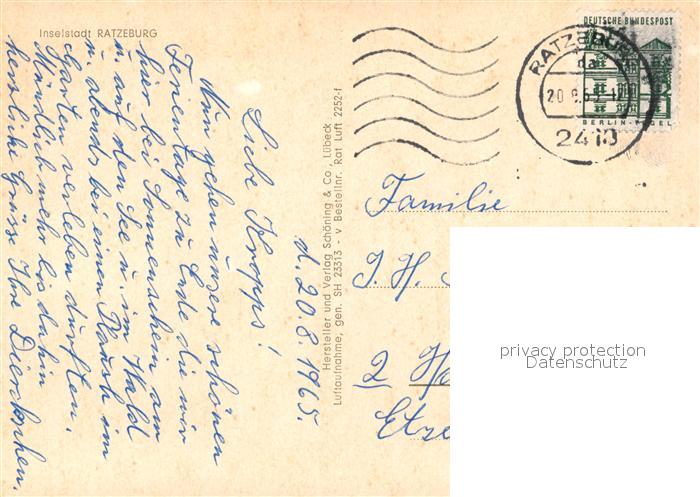 Inselstadt RATZEBURG
d. 20.8.1965.
Liebe Kropps!
Nun gehen unsere schönen
Ferientage zu Ende die wir
hier bei Sonnenschein am
u. auf den See u. im Wald
u. abends bei einen Plausch im
Garten verleben durften.
Mündlich mehr bis dahin
herzliche Grüsse Ihre
Hersteller und Verlag Schöning & Co, Lübeck
Luftaufnahme, gen. SH 23313 - v Bestellnr. Rat Luft 2252-f
DEUTSCHE BUNDESPOST
BERLIN-TEGEL
RATZEBURG
2410
Familie
J. H.
2
privacy protection
Datenschutz